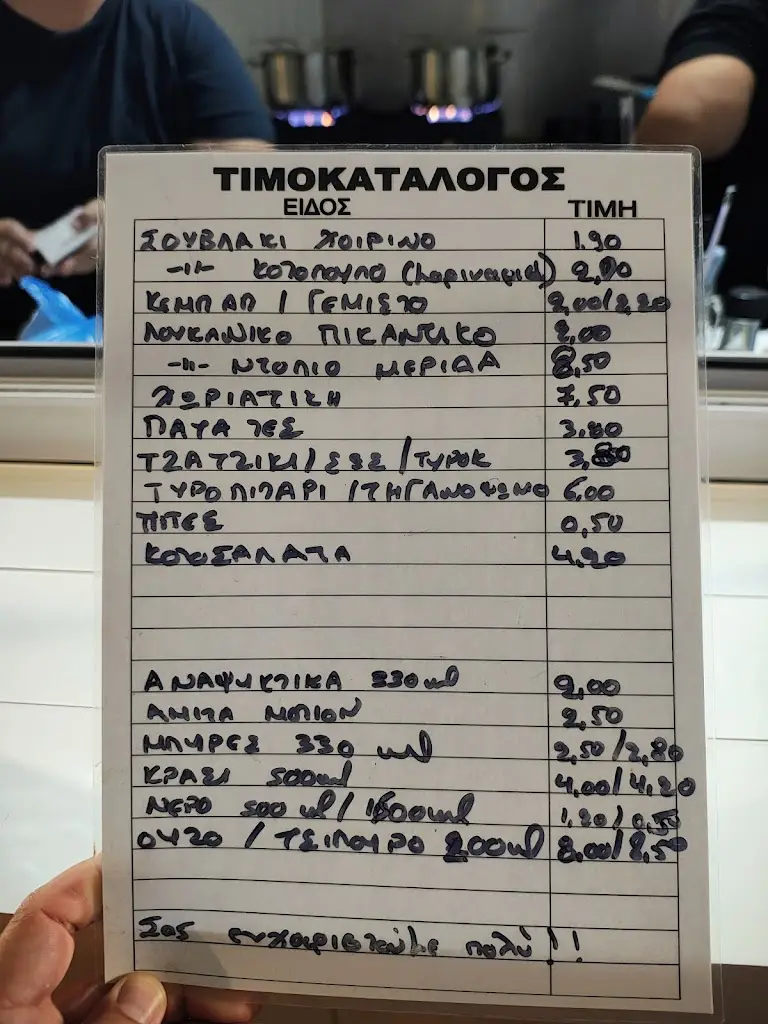 ΤΙΜΟΚΑΤΑΛΟΓΟΣ
ΕΙΔΟΣ ΤΙΜΗ
ΣΟΥΒΛΑΚΙ ΧΟΙΡΙΝΟ 1.90
-11- ΚΟΤΟΠΟΥΛΟ 2,00
ΚΕΜΠΑΠ / ΓΕΜΙΣΤΟ 2,00/2,20
ΛΟΥΚΑΝΙΚΟ ΠΙΚΑΝΤΙΚΟ 2,00
-11- ΝΤΟΠΙΟ ΜΕΡΙΔΑ 8,50
ΧΩΡΙΑΤΙΚΗ 7,50
ΠΑΤΑΤΕΣ
ΤΖΑΤΖΙΚΙ/ΣΩΣ/ΤΥΡΟΚ
ΤΥΡΟΠΙΤΑΡΙ /ΤΗΓΑΝΟΨΩΜΟ 6,00
ΠΙΤΕΣ 0,50
ΚΟΤΟΣΑΛΑΤΑ 4,20
ΑΝΑΨΥΚΤΙΚΑ 330 ml 2,00
ΑΜΙΤΑ ΜΟΤΙΟΝ 2,50
ΜΠΥΡΕΣ 330 ml 2,50/2,80
ΚΡΑΣΙ 500ml 4,00/4,20
ΝΕΡΟ 500 ml/1500ml
ΟΥΖΟ / ΤΣΙΠΟΥΡΟ 200ml 8,00/8,50
Σας ευχαριστούμε πολύ!!